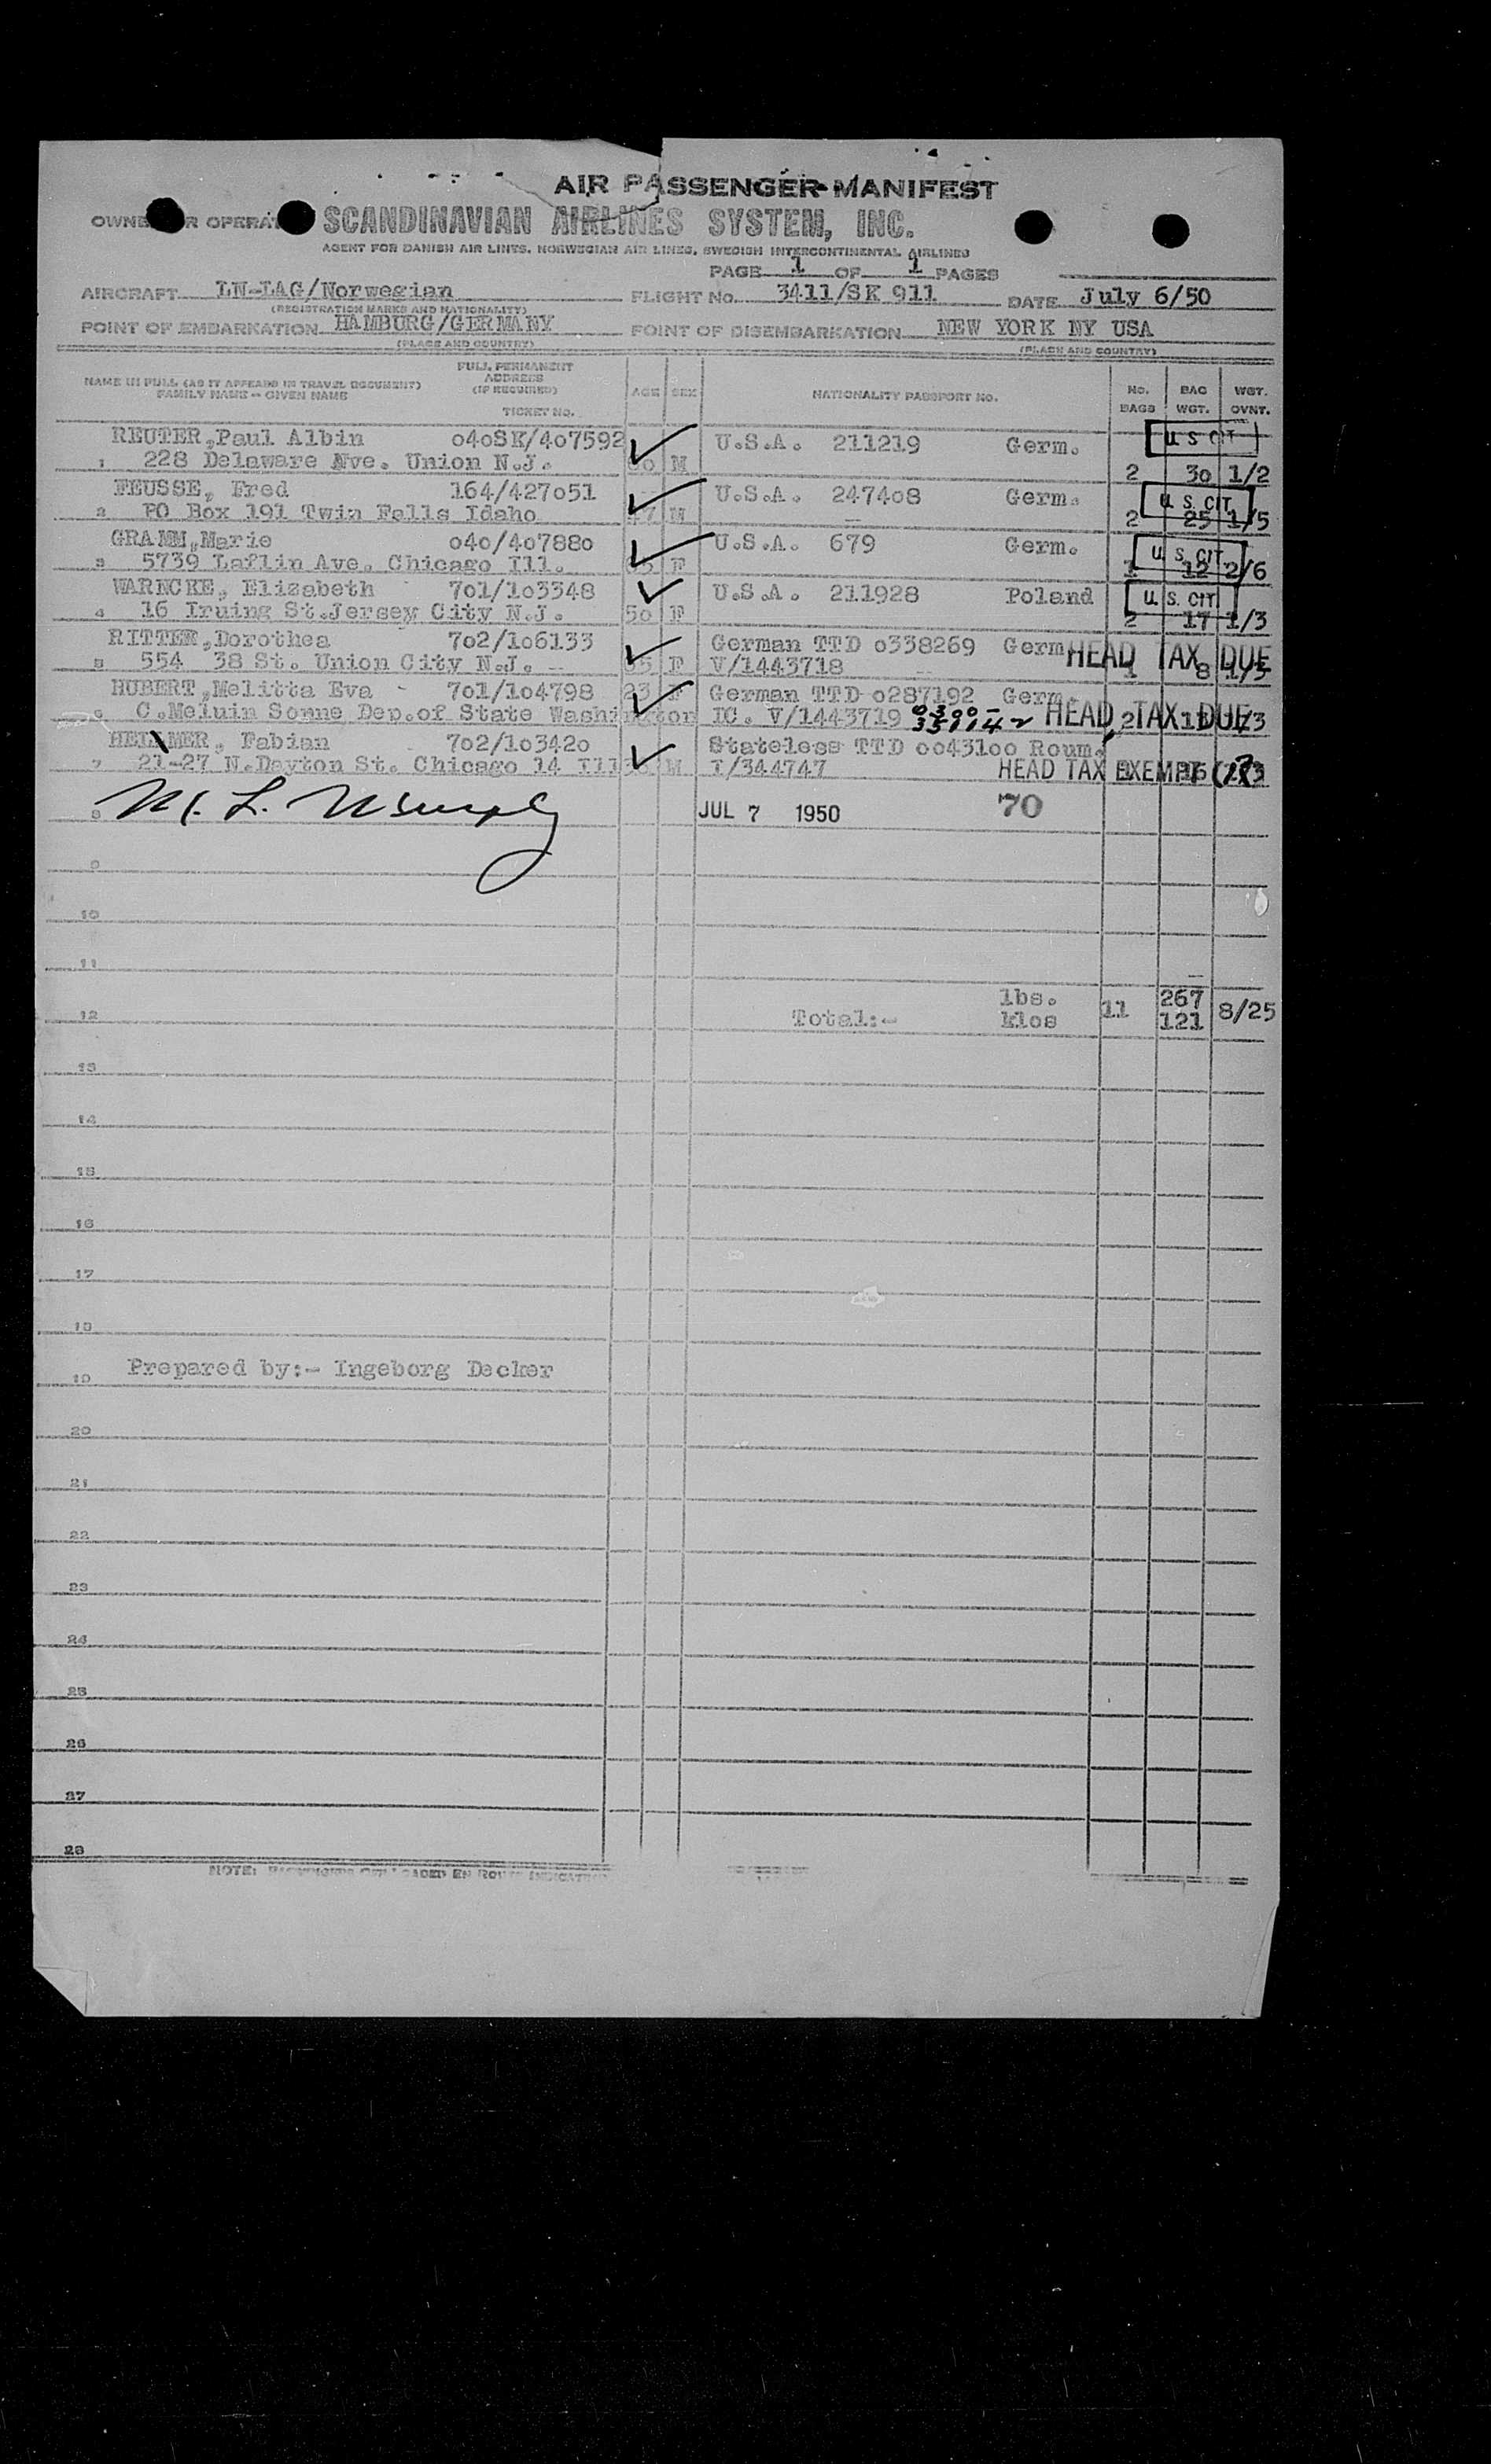 AIR PASSENGER MANIFEST
SCANDINAVIAN AIRLINES SYSTEM, INC.
AGENT FOR DANISH AIR LINES, NORWEGIAN AIR LINES, SWEDISH INTERCONTINENTAL AIRLINES
PAGE 1 OF 1 PAGES
AIRCRAFT LN-LAG/Norwegian FLIGHT No. 3411/SK 911 DATE July 6/50
(REGISTRATION MARKS AND NATIONALITY)
POINT OF EMBARKATION HAMBURG/GERMANY POINT OF DISEMBARKATION NEW YORK NY USA
(PLACE AND COUNTRY) (PLACE AND COUNTRY)
NAME IN FULL (AS IT APPEARS IN TRAVEL DOCUMENT)
FAMILY NAME -- GIVEN NAME
FULL PERMANENT
ADDRESS
(IF REQUIRED)
TICKET NO.
AGE SEX NATIONALITY PASSPORT NO. No. BAGS BAG WGT. WGT. OVNT.
REUTER,Paul Albin 040SK/407592 U.S.A. 211219 Germ. U S CIT
1 228 Delaware Ave. Union N.J. M 2 30 1/2
FEUSSE, Fred 164/427051 U.S.A. 247408 Germ. U. S. CIT
2 PO Box 191 Twin Falls Idaho 47 M 2 25 1/5
GRAMM,Marie 040/407880 U.S.A. 679 Germ. U. S. CIT
3 5739 Laflin Ave. Chicago Ill. F 1 12 2/6
WARNCKE, Elizabeth 701/103348 U.S.A. 211928 Poland U. S. CIT
4 16 Iruing St.Jersey City N.J. 50 F 2 17 1/3
RITTER,Dorothea 702/106133 German TTD 0338269 Germ. HEAD TAX DUE
5 554 38 St. Union City N.J. F V/1443718 1 8 1/3
HUBERT,Melitta Eva 701/104798 23 F German TTD 0287192 Germ.
6 C.Meluin Sonne Dep.of State Washington IC. V/1443719 HEAD TAX DUE 2
HEIMER, Fabian 702/103420 Stateless TTD 0043100 Roum.
7 21-27 N.Dayton St. Chicago 14 Ill M I/344747 HEAD TAX EXEMPT
8 JUL 7 1950 70
9
10
11
lbs. 267
12 Total:- 11 8/25
klos 121
13
14
15
16
17
18
19 Prepared by:- Ingeborg Decker
20
21
22
23
24
25
26
27
28